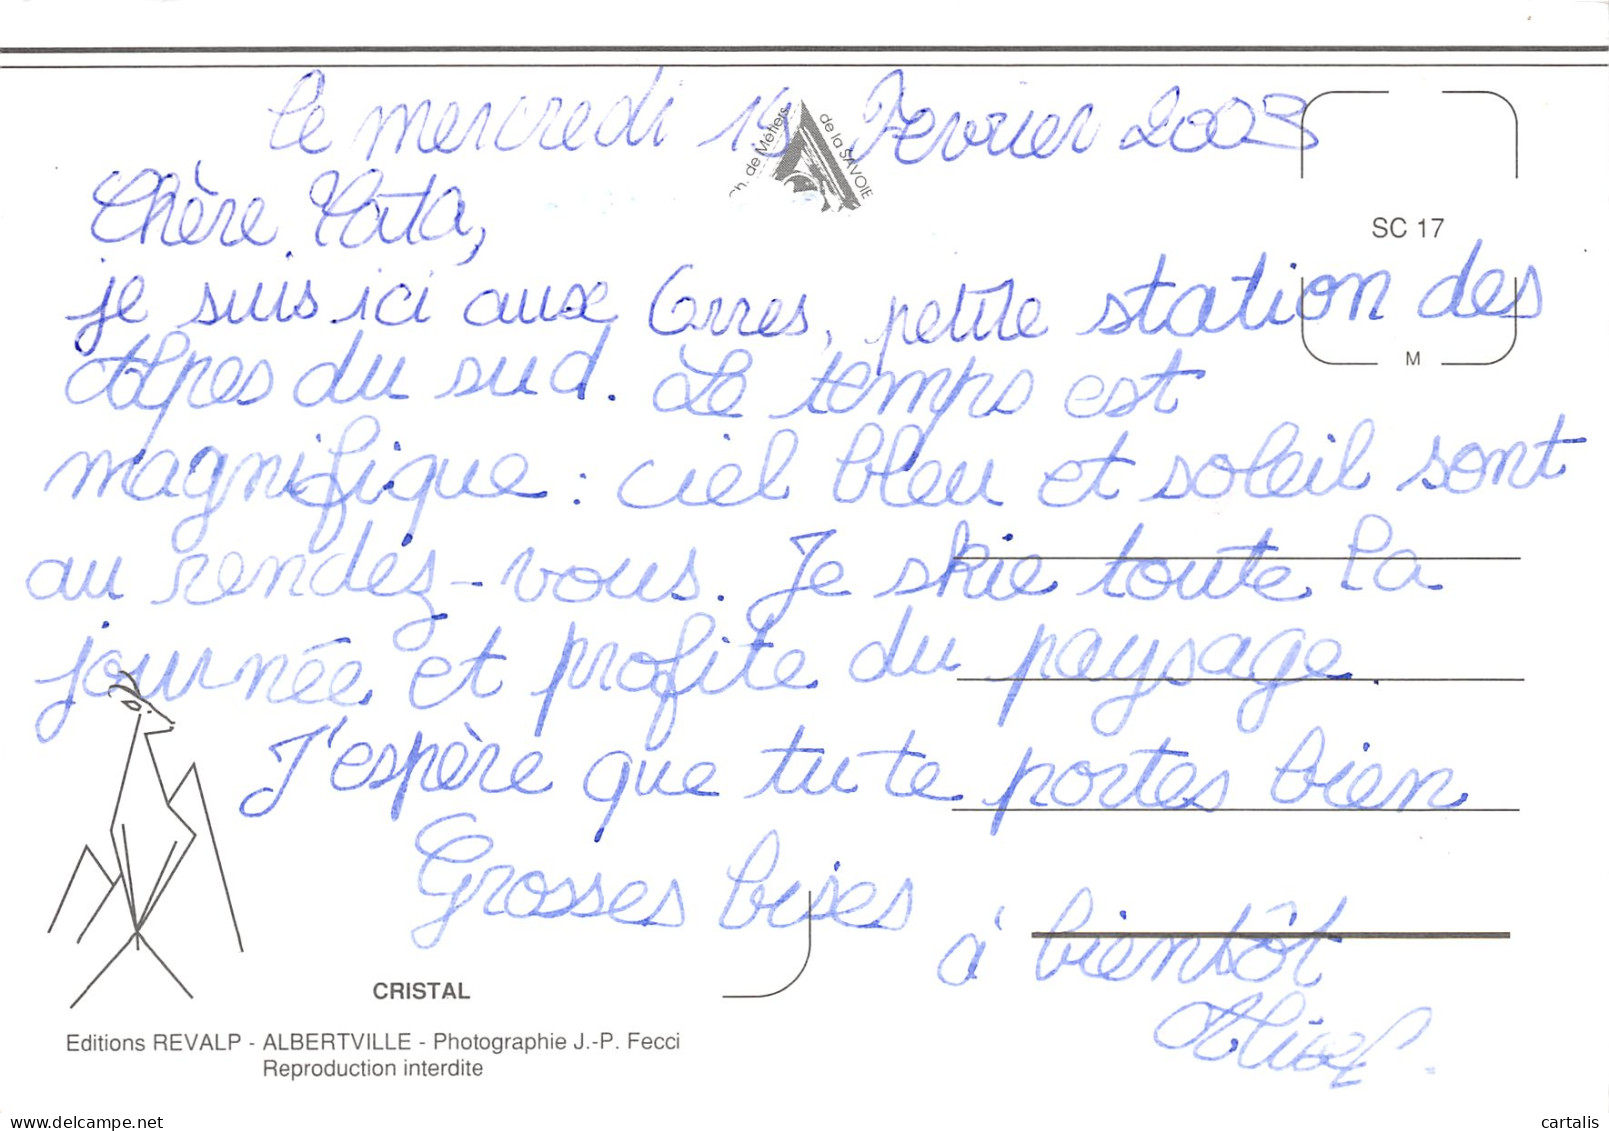 Le mercredi 19 Février 2003
Ch. de Métiers de la SAVOIE
Chère Tata,
SC 17
je suis ici aux Orres, petite station des
M
Alpes du sud. Le temps est
magnifique : ciel bleu et soleil sont
au rendez-vous. Je skie toute la
journée et profite du paysage.
J'espère que tu te portes bien
Grosses bises
à bientôt
CRISTAL
Editions REVALP - ALBERTVILLE - Photographie J.-P. Fecci
Reproduction interdite
cartalis